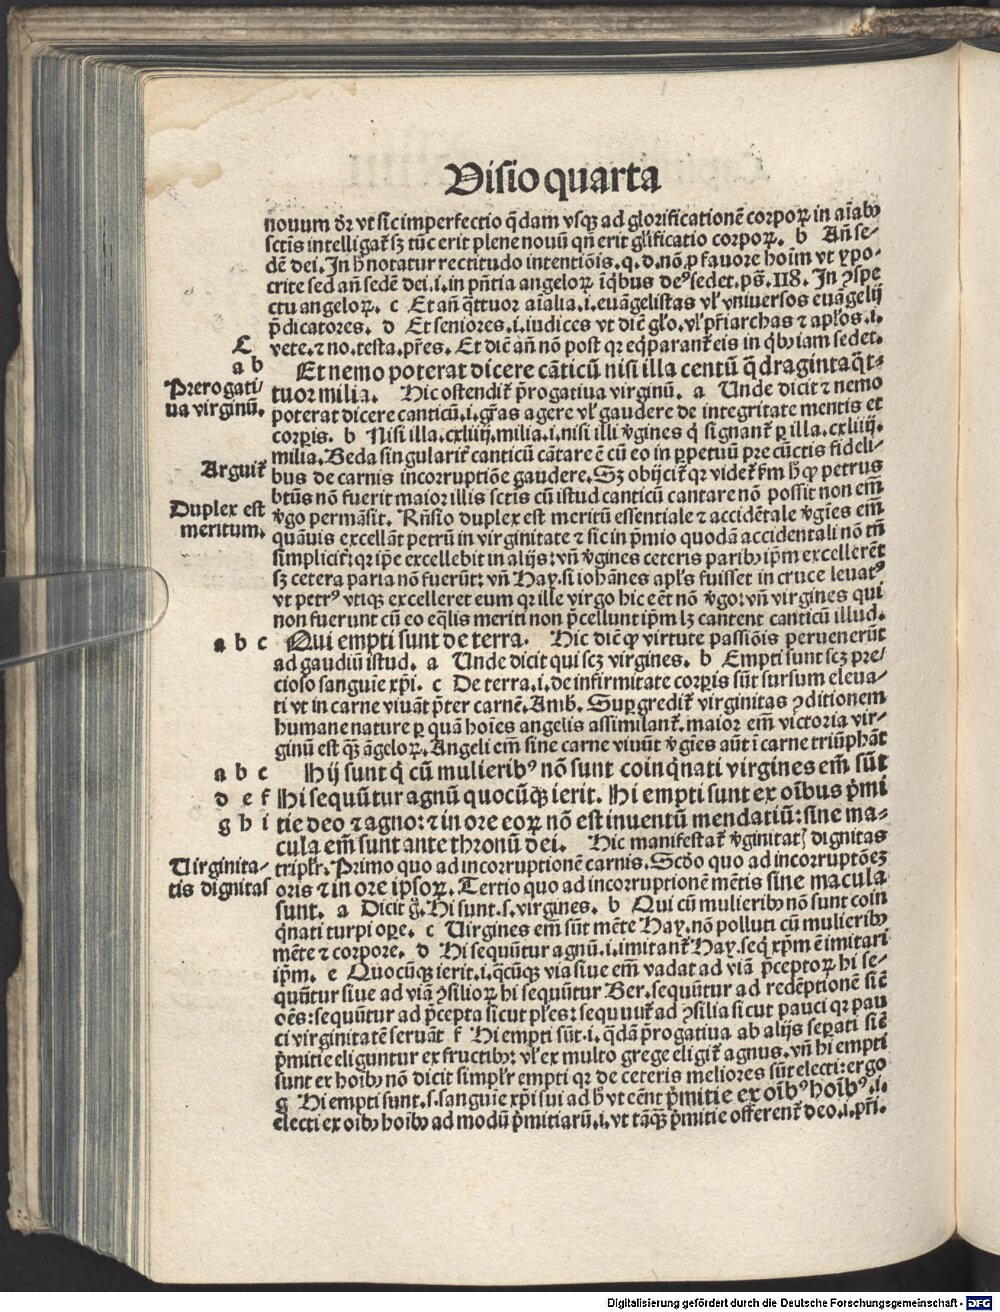 Visio quarta
nouum dr̄ vt sic imperfectio q̄dam vsq̧ ad glorificationē corporꝝ in aīabꝰ
sctīs intelligat̄ sꝫ tūc erit plene nouū qn̄ erit gl̄ificatio corporꝝ. b An̄ se-
dē dei. In h̄ notatur rectitudo intentiōis. q. d. nō ꝓ fauore hoīm vt ypo-
crite sed an̄ sedē dei. i. in pn̄tia angelorꝝ ī q̇bus deꝰ sedet. ps̄. 118. In ꝯspe
ctu angelorꝝ. c Et an̄ q̄ttuor aīalia. i. euāgelistas vl̓ vniuersos euāgelij
p̄dicatores. d Et seniores. i. iudices vt diē gl̓o. vl̓ pr̄iarchas ⁊ apl̓os. i.
vete. ⁊ no. testa. pr̄es. Et diē an̄ nō post qꝛ eq̄parant̄ eis in q̇bꝰ iam sedet.
C
a b
Et nemo poterat dicere cāticū nisi illa centū q̄draginta q̄t-
Prerogati/
ua virginū.
tuor milia. Hic ostendit̄ p̄rogatiua virginū. a Unde dicit ⁊ nemo
poterat dicere canticū. i. gr̄as agere vl̓ gaudere de integritate mentis et
corꝑis. b Nisi illa. cxliiij. milia. i. nisi illi v̓gines q̇ signant̄ ꝑ illa. cxliiij.
milia. Beda singularit̄ canticū cātare ē cū eo in ꝑpetuū pre cūctis fideli-
Arguit̄
bus de carnis incorruptiōe gaudere. Sꝫ obijcit̄ qꝛ videt̄ ẜm h̄ ꝙ petrus
btūs nō fuerit maior illis sctīs cū istud canticū cantare nō possit non em̄
Duplex est
meritum.
v̓go permāsit. Rn̄sio duplex est meritū essentiale ⁊ accidētale v̓gīes em̄
quāuis excellāt petrū in virginitate ⁊ sic in p̄mio quodā accidentali nō tn̄
simplicit̄: qꝛ ip̄e excellebit in alijs: vn̄ v̓gines ceteris paribꝰ ip̄m excellerēt
sꝫ cetera paria nō fuerūt: vn̄ Hay. si iohānes apl̓s fuisset in cruce leuatꝰ
vt petrꝰ vtiq̧ excelleret eum qꝛ ille virgo hic eēt nō v̓go: vn̄ virgines qui
non fuerunt cū eo eq̄lis meriti non p̄cellunt ip̄m lꝫ cantent canticū illud.
a b c Qui empti sunt de terra. Hic diē ꝙ virtute passiōis peruenerūt
ad gaudiū istud. a Unde dicit qui scꝫ virgines. b Empti sunt scꝫ pre/
cioso sanguīe xp̄i. c De terra. i. de infirmitate corꝑis sūt sursum eleua/
ti vt in carne viuāt p̄ter carnē. Amb. Suꝑgredit̄ virginitas ꝯditionem
humane nature ꝑ quā hoīes angelis assimilant̄. maior em̄ victoria vir/
ginū est q̄ꝫ āgelorꝝ. Angeli em̄ sine carne viuūt v̓gīes aūt ī carne triūphāt
a b c Hij sunt q̇ cū mulieribꝰ nō sunt coinq̇nati virgines em̄ sūt
d e f Hi sequūtur agnū quocūq̧ ierit. Hi empti sunt ex oībus p̄mi
g h i tie deo ⁊ agno: ⁊ in ore eorꝝ nō est inuentū mendatiū: sine ma-
cula em̄ sunt ante thronū dei. Hic manifestat̄ v̓ginitatꝭ dignitas
Uirginita-
tis dignitas
tripl̓r. Primo quo ad incorruptionē carnis. Scd̓o quo ad incorruptōeꝫ
oris ⁊ in ore ipsorꝝ. Tertio quo ad incorruptionē mētis sine macula
sunt. a Dicit g̓. Hi sunt. s. virgines. b Qui cū mulieribꝰ nō sunt coin
q̇nati turpi oꝑe. c Uirgines em̄ sūt mēte Hay. nō polluti cū mulieribꝰ
mēte ⁊ corpore. d Hi sequūtur agnū. i. imitant̄ Hay. seq̇ xp̄m ē imitari
ip̄m. e Quocūq̧ ierit. i. q̄cūq̧ via siue em̄ vadat ad viā p̄ceptorꝝ hi se/
quūtur siue ad viā ꝯsiliorꝝ hi sequūtur Ber. sequūtur ad redēptionē sic̄
oēs: sequūtur ad p̄cepta sicut pl̓es: sequuūt̄ ad ꝯsilia sicut pauci qꝛ pau
ci virginitatē seruāt f Hi empti sūt. i. q̄dā p̄rogatiua ab alijs seꝑati sic̄
p̄mitie eliguntur ex fructibꝰ: vl̓ ex multo grege eligit̄ agnus. vn̄ hi empti
sunt ex hoībꝰ nō dicit simpl̓r empti qꝛ de ceteris meliores sūt electi: ergo
g Hi empti sunt. s. sanguīe xp̄i sui ad h̄ vt eēnt p̄mitie ex oībꝰ hoībꝰ. i.
electi ex oībꝰ hoībꝰ ad modū p̄mitiarū. i. vt tāq̄ꝫ p̄mitie offerent̄ deo. i. pr̄i.
Digitalisierung gefördert durch die Deutsche Forschungsgemeinschaft - DFG